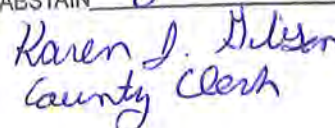 ABSTAIN
Karen J. Gibson
County Clerk